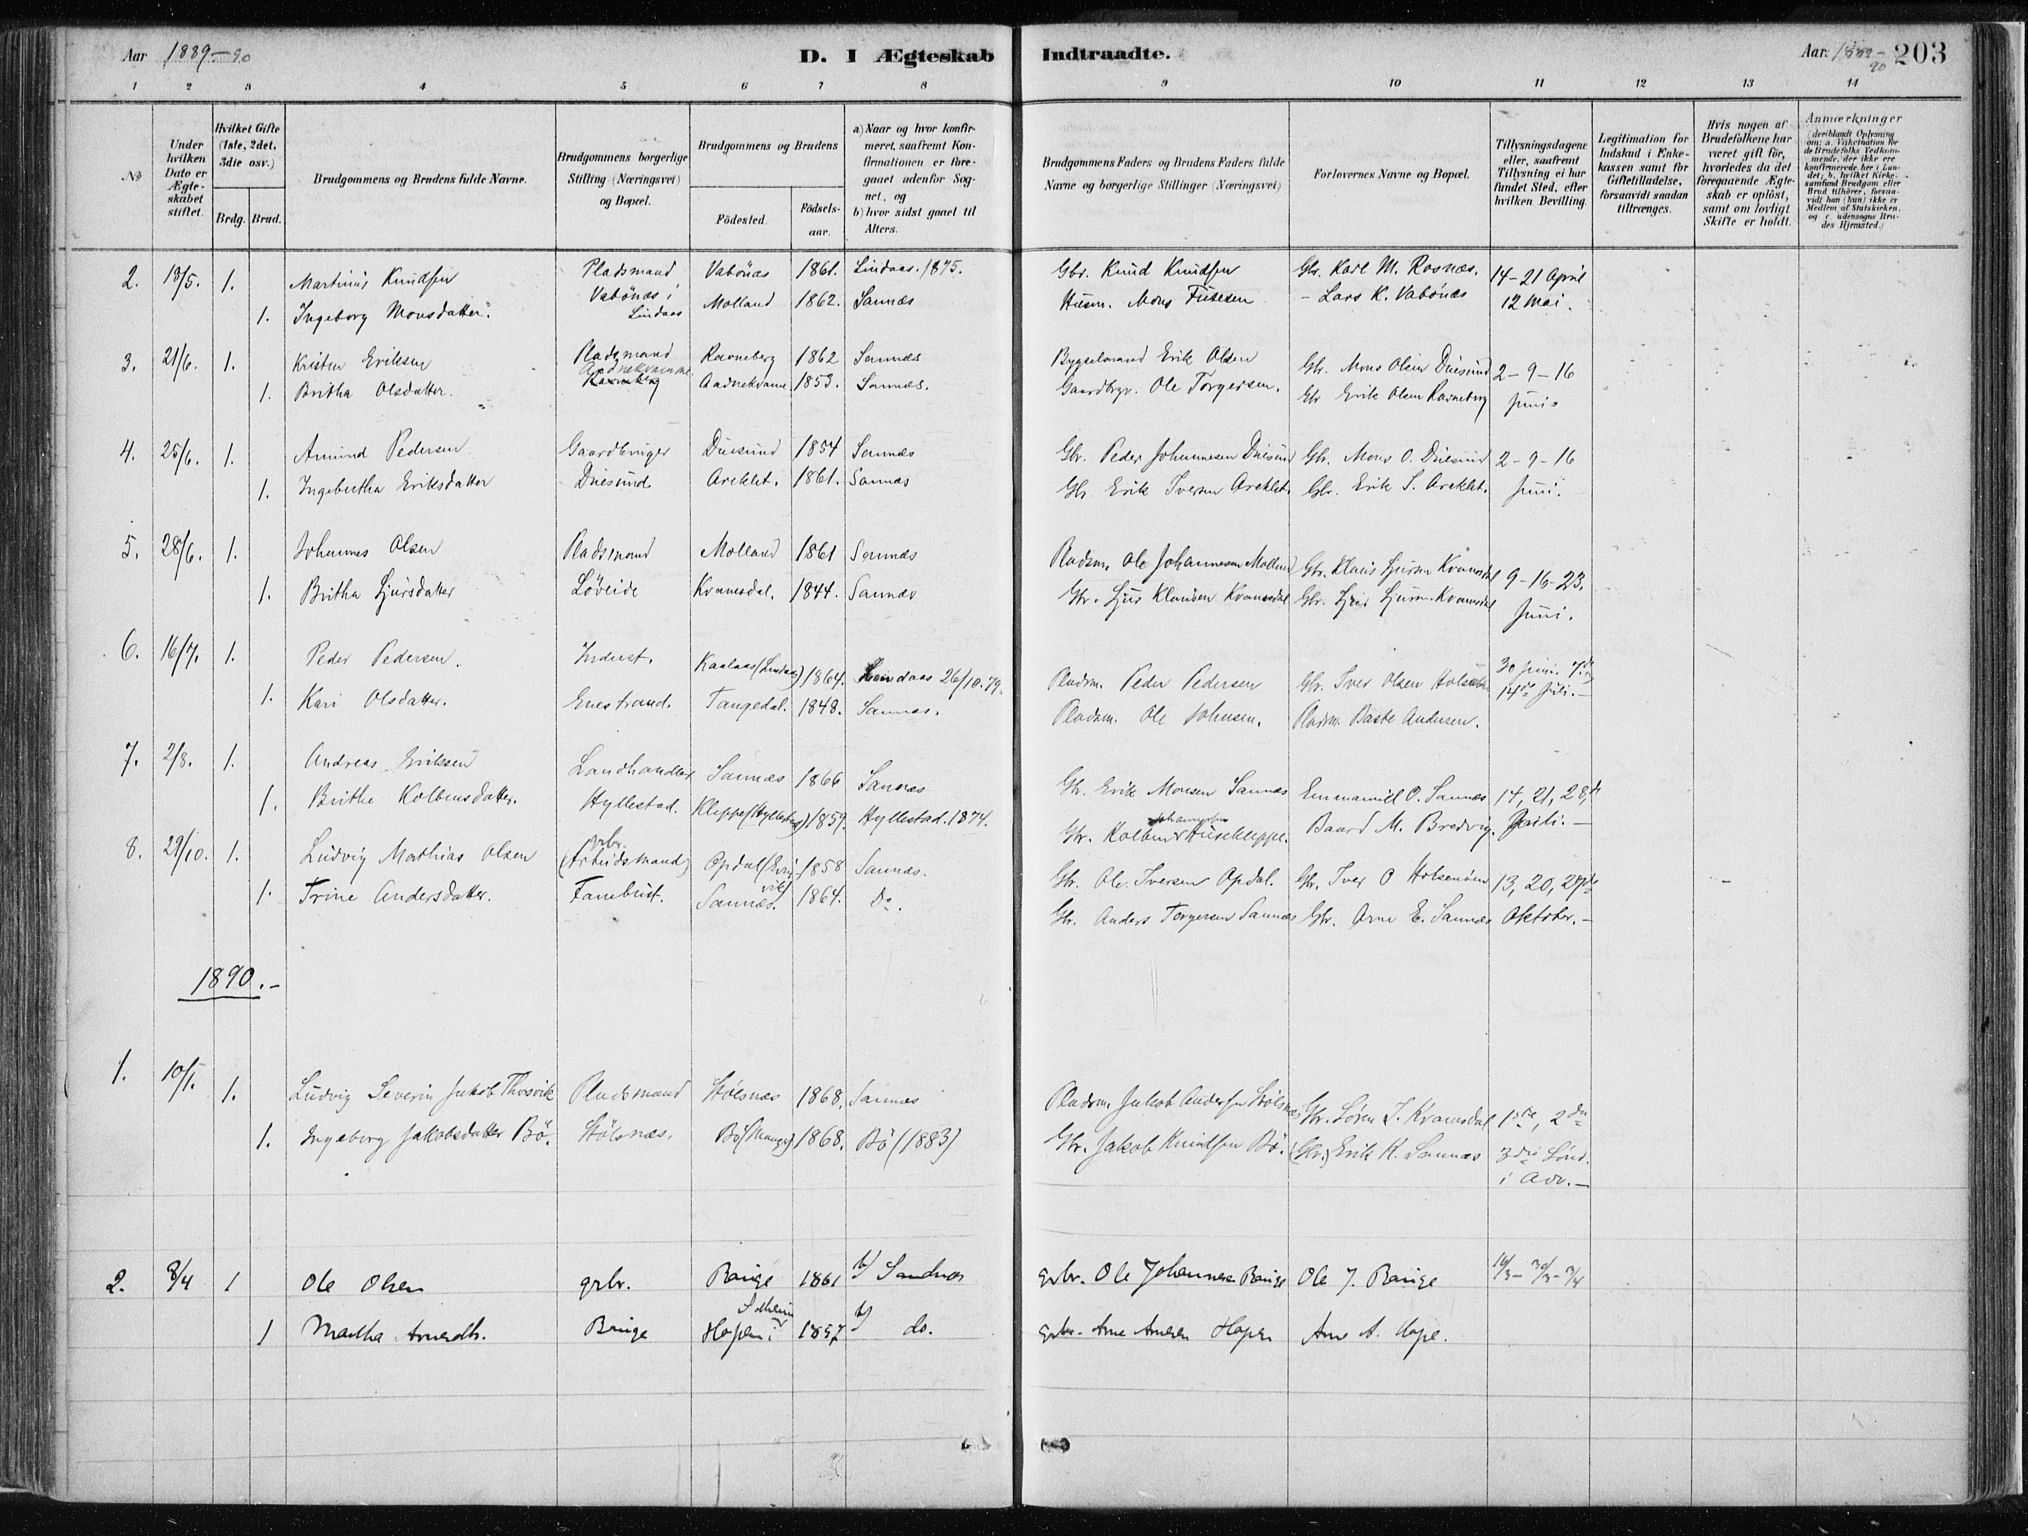 Aar 1889-90
D. I Ægteskab Indtraadte.
Aar: 1889-90 203
1 2 3 4 5 6 7 8 9 10 11 12 13 14
No
Under hvilken Dato er Ægteskabet stiftet.
Hvilket Gifte (1ste, 2det, 3die osv.)
Brdg. Brud.
Brudgommens og Brudens fulde Navne.
Brudgommens borgerlige Stilling (Næringsvei) og Bopæl.
Brudgommens og Brudens
Fødested.
Fødselsaar.
a) Naar og hvor konfirmeret, saafremt Konfirmationen er foregaaet udenfor Sognet, og
b) hvor sidst gaaet til Alters.
Brudgommens Faders og Brudens Faders fulde Navne og borgerlige Stillinger (Næringsvei)
Forlovernes Navne og Bopæl.
Tillysningsdagene eller, saafremt Tillysning ei har fundet Sted, efter hvilken Bevilling.
Legitimation for Indskud i Enkekassen samt for Giftetilladelse, forsaavidt saadan tiltrænges.
Hvis nogen af Brudefolkene har været gift før, hvorledes da det foregaaende Ægteskab er opløst, samt om lovligt Skifte er holdt.
Anmærkninger (deriblandt Oplysning om: a. Vakcination for de Brudefolks Vedkommende, der ikke ere konfirmerede her i Landet; b. hvilket Kirkesamfund Brudgom eller Brud tilhører, forsaavidt han (hun) ikke er Medlem af Statskirken, og c. udensogns Brudes Hjemsted.)
2. 13/5. 1. Martinus Knudsen Pladsmand Vabönæs 1861. Lindaas. 1875. Gbr. Knud Knudsen Gbr. Karl M. Rosnæs. 14-21 April
1. Ingeborg Monsdatter. Vabönæs i Lindaas Molland 1862. Sannæs Husm. Mons - Lars K. Vabönæs 12 Mai.
3. 21/6. 1. Kristen Eriksen Pladsmand Aadnekvamme Ravneberg 1862 Sannæs Bygselmand Erik Olsen Gbr. Mons Olsen Duesund 2-9-16
1. Britha Olsdatter. Ravneberg Aadnekvame 1853. Sannæs. Gaardbgr. Ole Torgersen. Gbr Erik Olsen Ravneberg Juni.
4. 25/6. 1. Amund Pedersen Gaardbruger Duesund 1854 Sannæs Gbr. Peder Johannesen Duesund Gbr. Mons O. Duesund 2-9-16
1. Ingebertha Eriksdatter Duesund Areklet. 1861. Sannæs Gbr. Erik Iversen Areklet. Gbr. Erik S. Areklet. Juni.
5. 28/6. 1. Johannes Olsen Pladsmand Molland 1861 Sannæs Pladsm. Ole Johannesen Molland Gbr. Klaus Sjursen Kvamsdal 9-16-23.
1. Britha Sjursdatter Løveide Kvamsdal. 1844. Sannæs Gbr. Sjur Klausen Kvamsdal Gbr. Sjur Sjursen Kvamsdal Juni.
6. 16/7. 1. Peder Pedersen. Inderst. Kaalaas (Lindaas) 1864. Lindaas 26/10.79. Pladsm. Peder Pedersen Gbr. Iver Olsen 30 Juni. 7de og
1. Kari Olsdatter. Enestrand. Tangedal. 1848. Sannæs. Pladsm. Ole Johnsen. Pladsm. Baste Andersen. 14de Juli.-
7. 2/8. 1. Andreas Eriksen Landhandler Sannæs 1866 Sannæs Gbr. Erik Monsen Sannæs Emmanuell O. Sannæs 14, 21, 28de
1. Brithe Kolbensdatter. Hyllestad. Kleppe (Hyllestad) 1859. Hyllestad. 1874. Gbr. Kolben Johannesen Husekleppe. Baard M. Bredvig. Juli.-
8. 29/10. 1. Ludvig Mathias Olsen grbr. (Arbeidsmand) Opdal (Evindvik) 1858 Sannæs. Gbr. Ole Iversen Opdal. Gbr. Iver O 13, 20, 27de
1. Trine Andersdatter. Farnbust. Sannæs. 1864. Do. Gbr. Anders Torgersen Sannæs Gbr. Arne E. Sannæs Oktober.-
1890.-
1. 10/1. 1. Ludvig Severin Jakob Thorsvik Pladsmand Stölsnæs 1868. Sannæs Pladsm. Jakob Andersen Stölsnæs Gbr. Sören I. Kvamsdal 1ste, 2den
1. Ingeborg Jakobsdatter Bö. Stölsnæs. Bö (Manger) 1868. Bö (1883) Gbr. Jakob Knudsen Bö. (Gbr.) Erik K. Sannæs 3die Sönd. i Adv.-
2. 8/4 1 Ole Olsen grbr. Bauge 1861 b) Sandnæs grbr. Ole Johannesen Bauge Ole J. Bauge 16/3 - 30/3 - 3/4
1 Martha Arnesdtr. Bauge Hopen i Solheim 1857 b) do. grbr. Arne Arnesen Hopen Arne A. Hope.